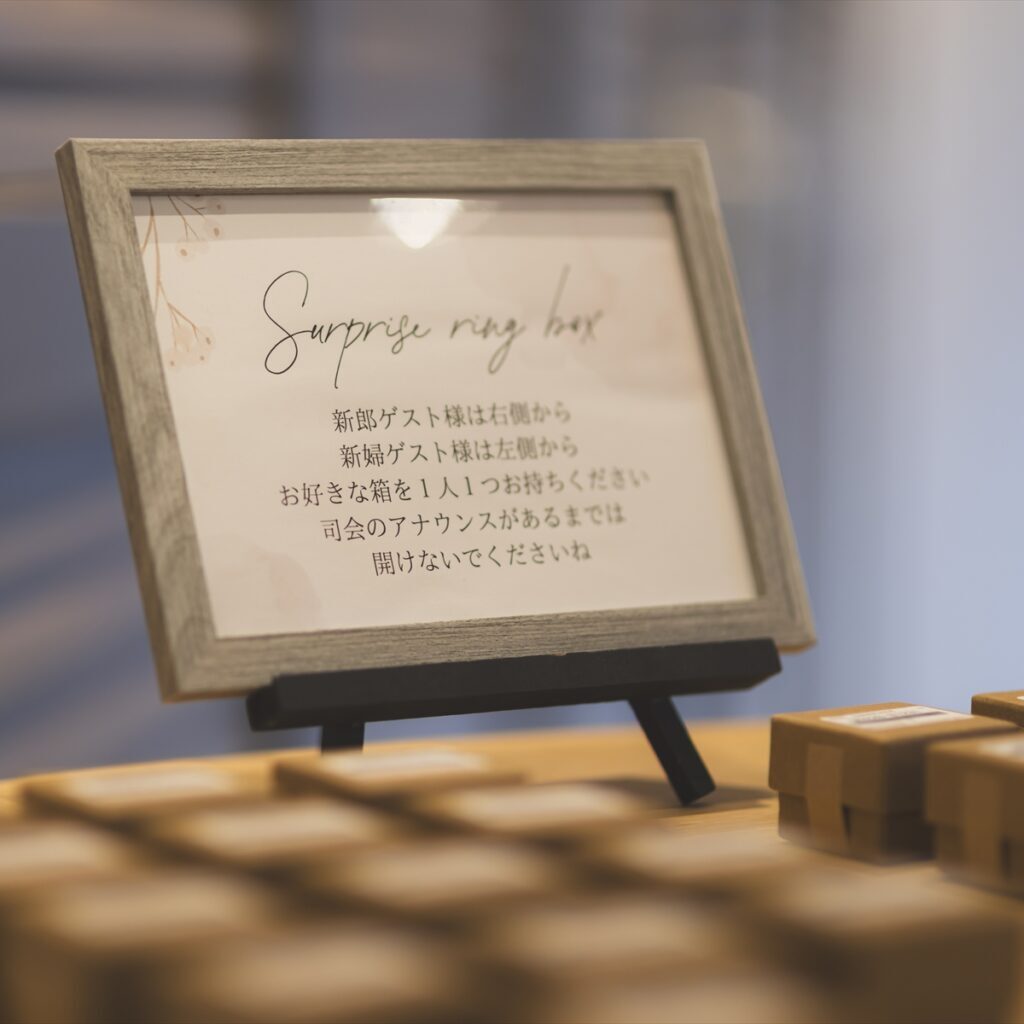 Surprise ring box
新郎ゲスト様は右側から
新婦ゲスト様は左側から
お好きな箱を１人１つお持ちください
司会のアナウンスがあるまでは
開けないでくださいね